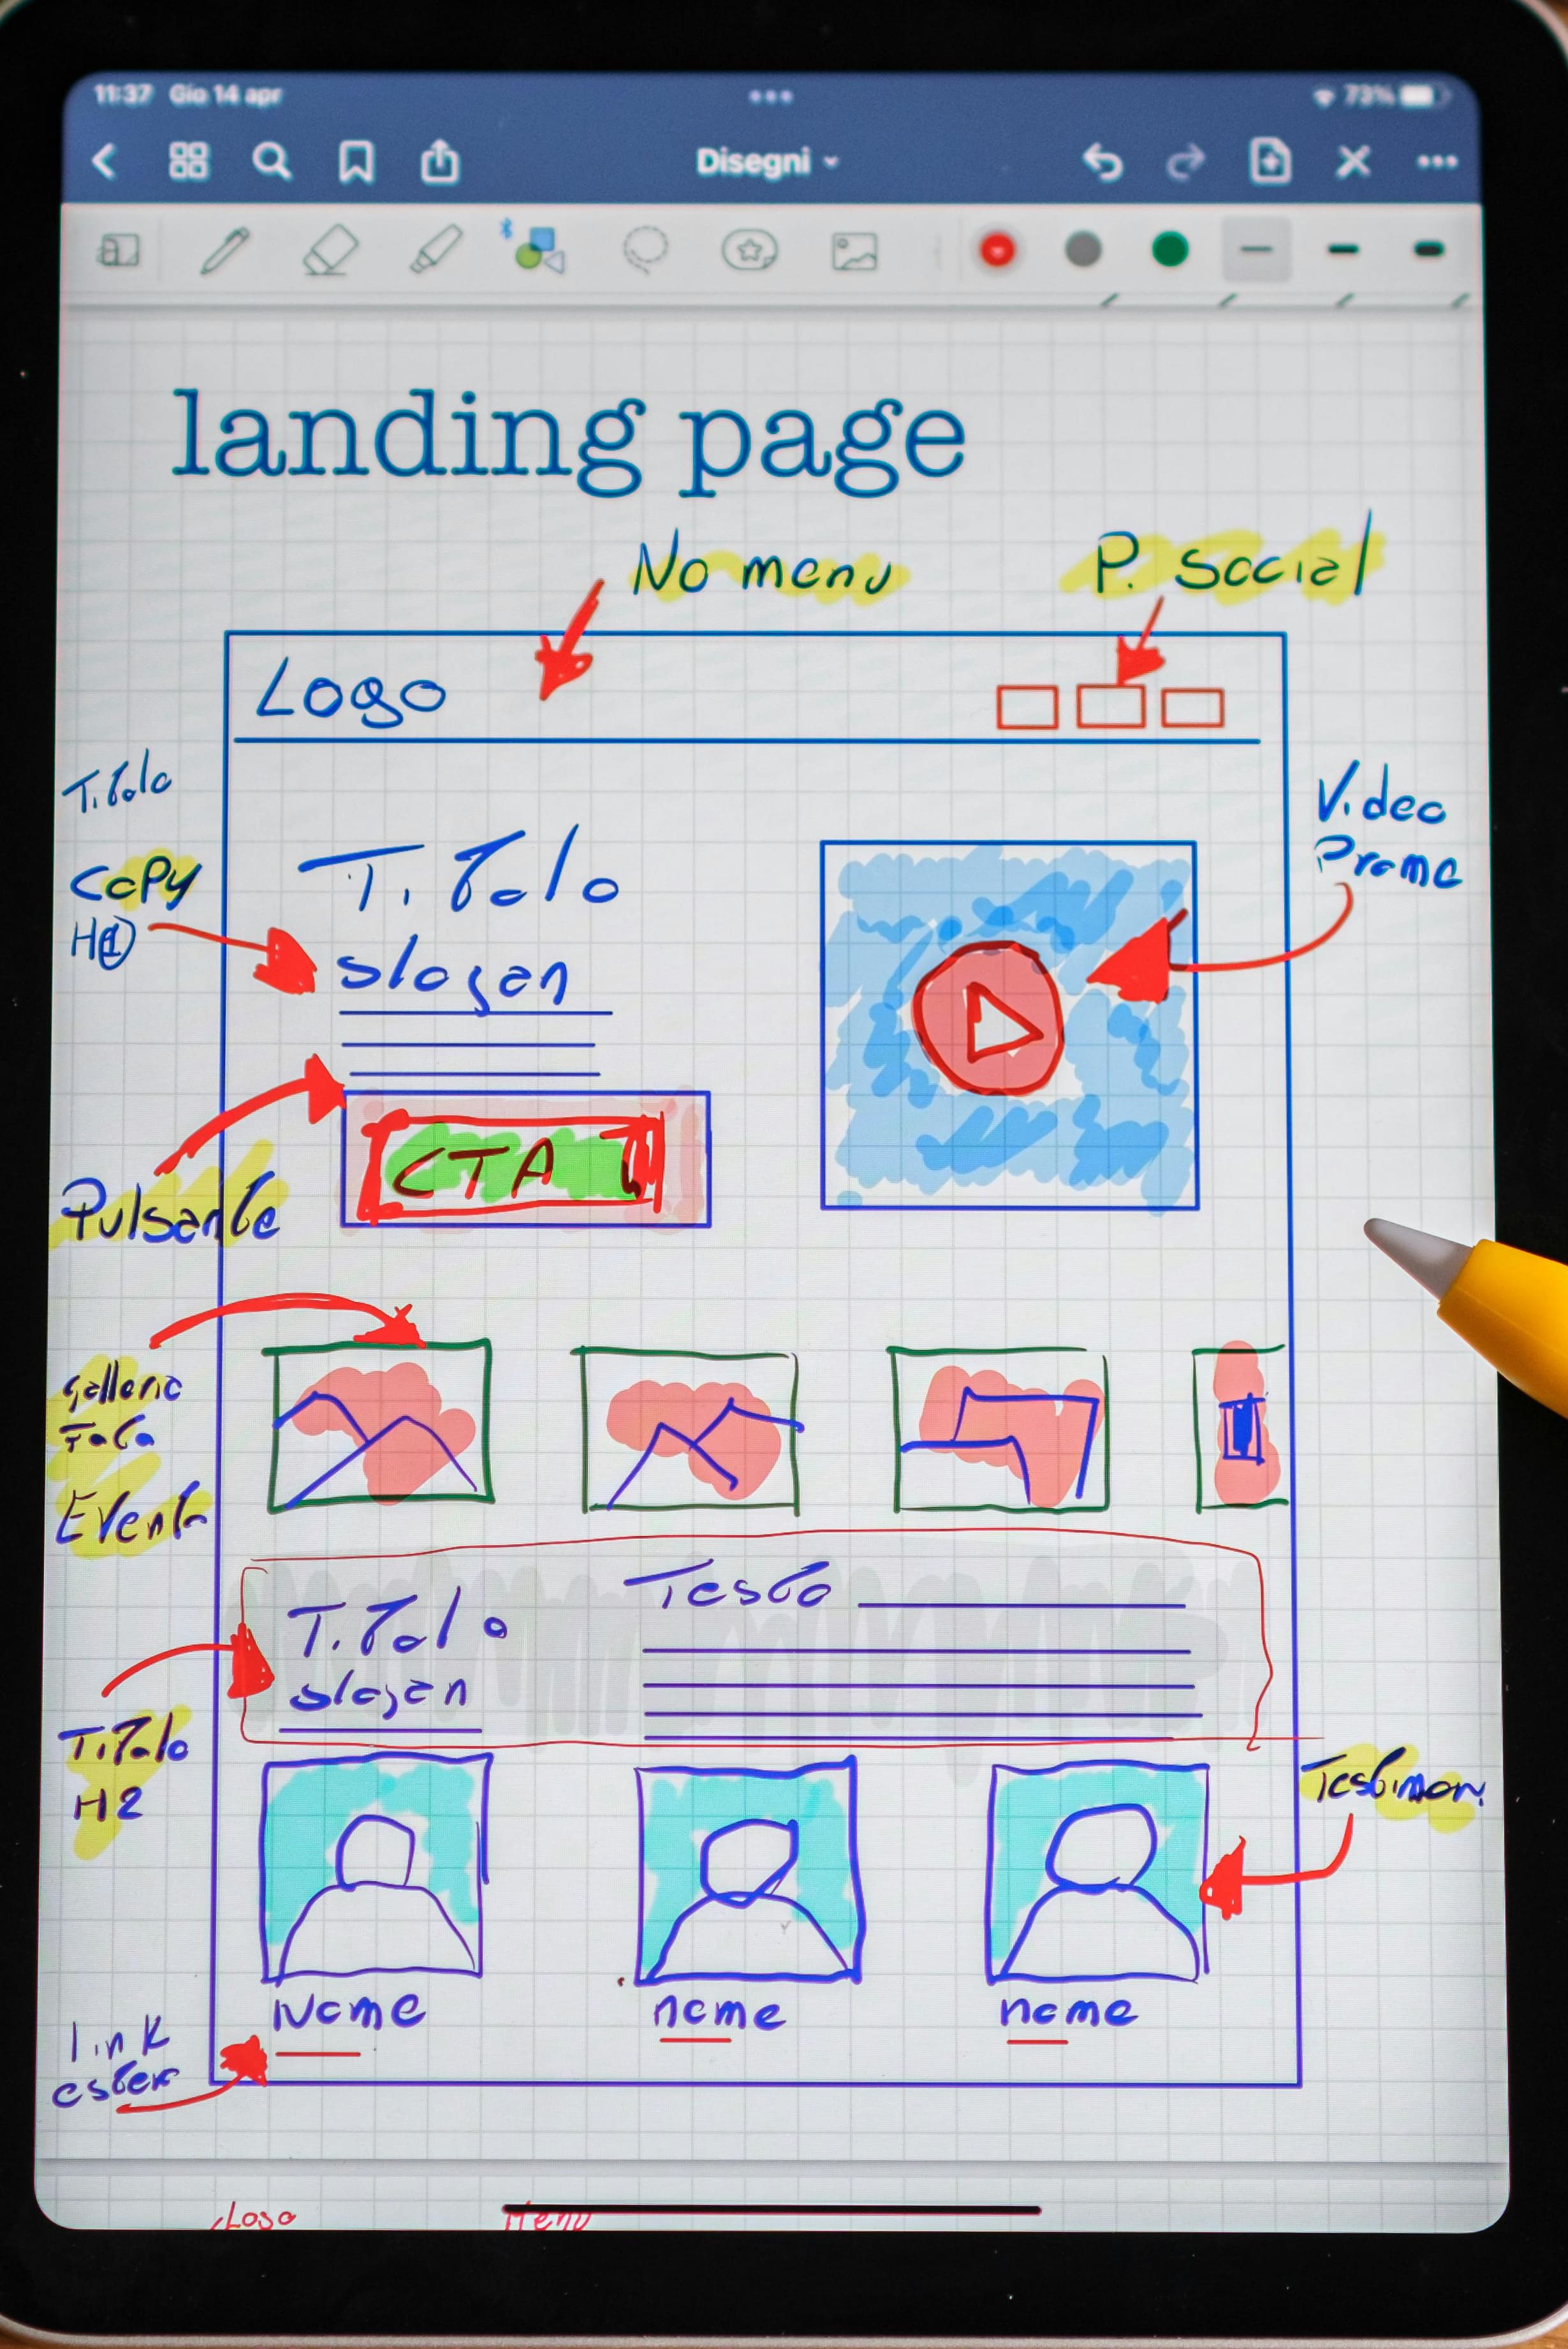 11:37 Gio 14 apr
73%
Disegni
landing page
No menu
P. Social
Logo
Titolo
Copy
H1
Titolo
slogan
Video
Promo
CTA
Pulsante
galleria
Foto
Evento
Titolo
slogan
Testo
Titolo
H2
Testimoni
Nome
nome
nome
link
esterno
Logo
Menu